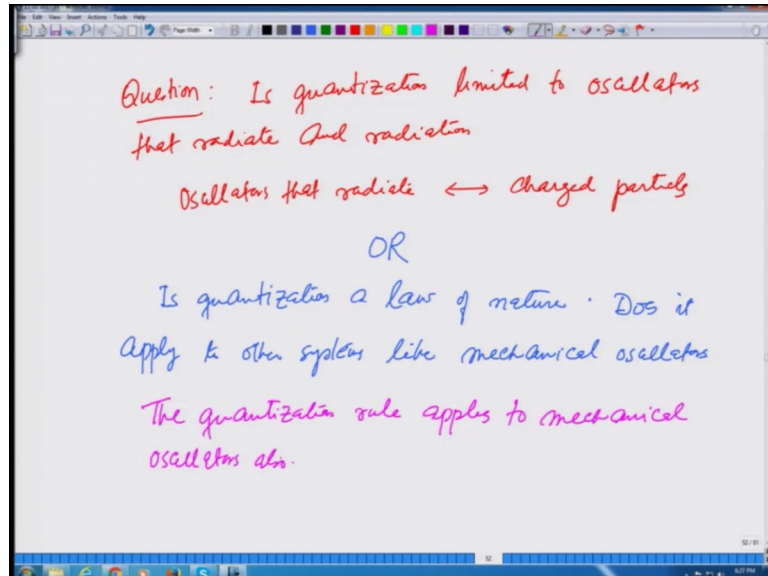 File Edit View Insert Actions Tools Help
Page Width
Question: Is quantization limited to oscillators
that radiate and radiation
Oscillators that radiate ↔ Charged particles
OR
Is quantization a law of nature. Does it
apply to other systems like mechanical oscillators
The quantization rule applies to mechanical
oscillators also.
52 / 81
52
6:27 PM